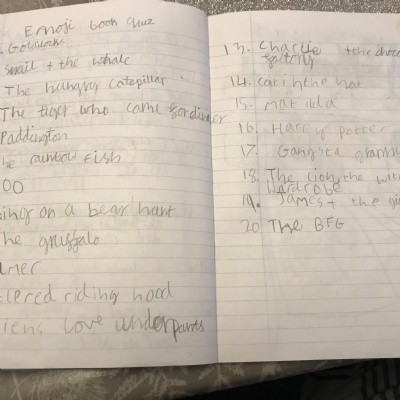 Emoji book Quiz
Goldilocks
Snail + the whale
The hungry catepillar
The tiger who came for dinner
Paddington
he rainbow fish
oo
ing on a bear hunt
he gruffalo
mer
ered riding hood
iens love underpants
13. Charlie + the choc
factory
14. cat in the hat
15. Matilda
16. Harry potter
17. Gangsta grann
18. The lion, the wit
Wardrobe
19. James + the gi
20 The BFG